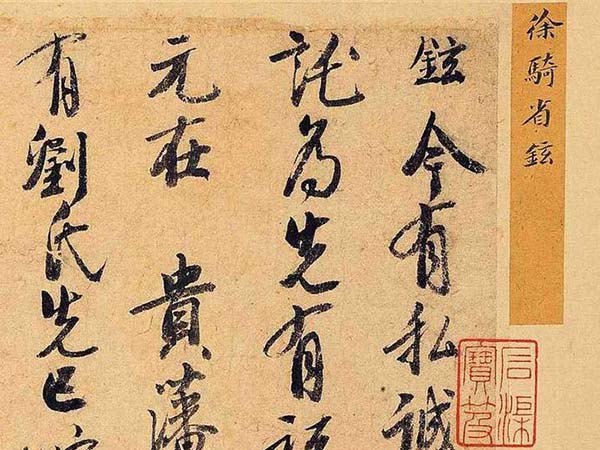 徐騎省鉉
石渠寶笈
鉉今有私誠
託為先有
元在 貴藩
有劉氏先已